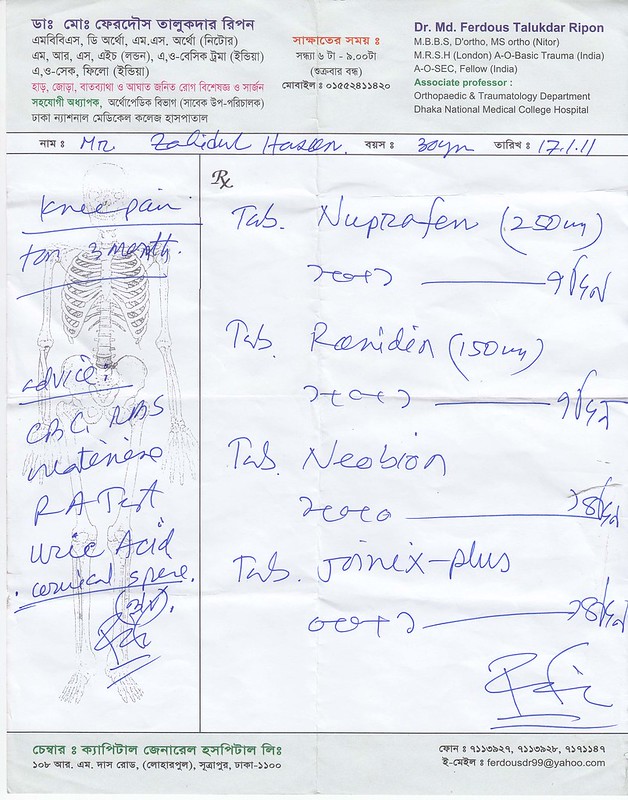 ডাঃ মোঃ ফেরদৌস তালুকদার রিপন
এমবিবিএস, ডি অর্থো, এম.এস. অর্থো (নিটোর)
এম, আর, এস, এইচ (লন্ডন), এ,ও-বেসিক ট্রমা (ইন্ডিয়া)
এ,ও-সেক, ফিলো (ইন্ডিয়া)
হাড়, জোড়া, বাতব্যাথা ও আঘাত জনিত রোগ বিশেষজ্ঞ ও সার্জন
সহযোগী অধ্যাপক, অর্থোপেডিক বিভাগ (সাবেক উপ-পরিচালক)
ঢাকা ন্যাশনাল মেডিকেল কলেজ হাসপাতাল
সাক্ষাতের সময় ঃ
সন্ধ্যা ৬ টা - ৯.০০টা
(শুক্রবার বন্ধ)
মোবাইল ঃ ০১৫৫২৪১১৪২০
Dr. Md. Ferdous Talukdar Ripon
M.B.B.S, D'ortho, MS ortho (Nitor)
M.R.S.H (London) A-O-Basic Trauma (India)
A-O-SEC, Fellow (India)
Associate professor :
Orthopaedic & Traumatology Department
Dhaka National Medical College Hospital
নাম ঃ Mr. Zahidul Hasan. বয়স ঃ 30yrs তারিখ ঃ 17.1.11
Knee pain
for 3 month.
advice:
CBC RBS
R A Test
Uric Acid
cervical spine.
Rx
Tab. Nuprafen (250mg)
১+০+১ ৭ দিন
Tab. Ranidin (150mg)
১+০+১ ৭ দিন
Tab. Neobion
১৪ দিন
Tab. Joinix-plus
০+০+১ ১৪ দিন
চেম্বার ঃ ক্যাপিটাল জেনারেল হসপিটাল লিঃ
১০৮ আর. এম. দাস রোড, (লোহারপুল), সূত্রাপুর, ঢাকা-১১০০
ফোন ঃ ৭১১৩৯২৭, ৭১১৩৯২৮, ৭১৭১১৪৭
ই-মেইল ঃ ferdousdr99@yahoo.com